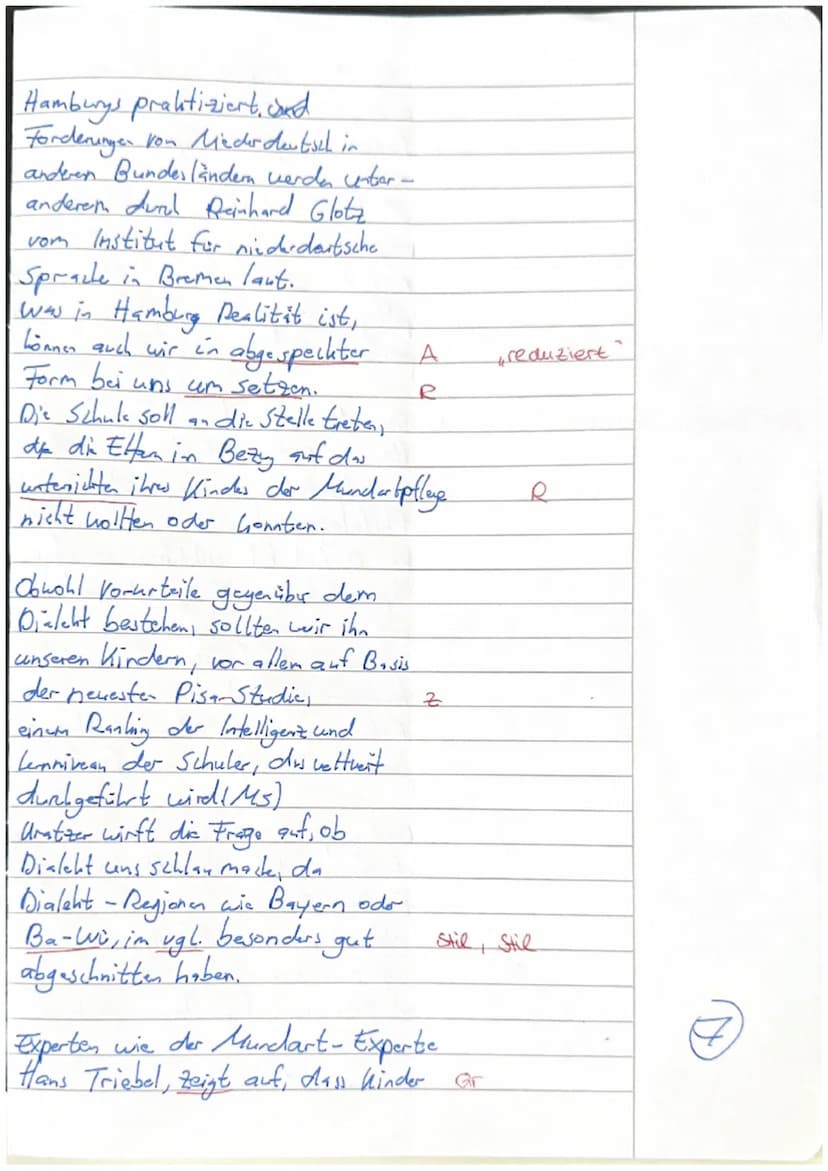 Hamburgs praktiziert, und
Forderungen von Niederdeutsch in
anderen Bundesländern werden unter-
anderem durch Reinhard Glotz
vom Institut für niederdeutsche
Sprache in Bremen laut.
Was in Hamburg Realität ist,
können auch wir in abgespeckter A „reduziert“
Form bei uns um setzen. R
Die Schule soll an die Stelle treten,
die Eltern in Bezug auf das
unterrichten ihres Kindes der Mundartpflege R
nicht wollten oder konnten.
Obwohl Vorurteile gegenüber dem
Dialekt bestehen, sollten wir ihn
unseren Kindern, vor allem auf Basis
der neuesten Pisa-Studie, Z
einem Ranking der Intelligenz und
Lernniveau der Schüler, das weltweit
durchgeführt wird (M5)
Kratzer wirft die Frage auf, ob
Dialekt uns schlau mache, da
Dialekt-Regionen wie Bayern oder
Ba-Wü, im vgl. besonders gut Stil, Stil
abgeschnitten haben.
Experten wie der Mundart-Experte
Hans Triebel, zeigt auf, dass Kinder Gr
7